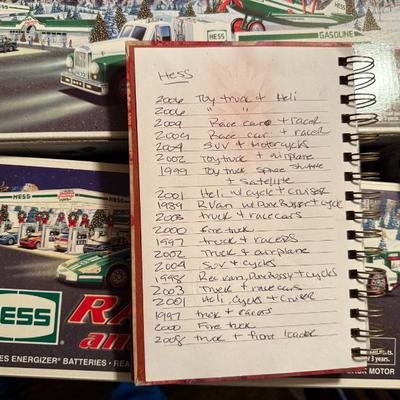 HESS
GASOLINE
Hess
2006 Toy truck + Heli
2006 " " "
2009 Race car + racer
2009 Race car + racer
2004 SUV + Motorcycles
2002 Toy truck + airplane
1999 Toy truck Space Shuttle
+ Satellite
2001 Heli w/ cycle + Cruiser
1989 RVan w/ Dune Buggy + cycle
2003 truck + race cars
2000 Fire truck
1997 truck + racers
2002 Truck + airplane
2004 SUV + cycles
1998 Rec van, Dune Buggy + cycles
2003 Truck + race cars
2001 Heli, cycles + Cruiser
1997 truck + racers
2000 Fire truck
2008 truck + front loader
HESS
HESS
RA
an
ES ENERGIZER® BATTERIES • REA
3 years.
CK MOTOR